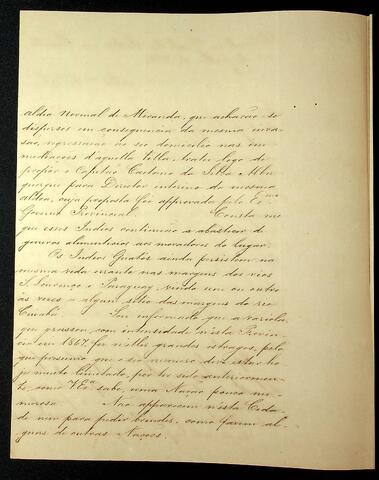 aldea Normal de Miranda, que achavão-se
dispersos em consequencia da mesma inva-
são, regressarão ao seo domicilio nas im-
mediações d'aquella Villa, tratei logo de
propôr o Capitão Caetano da Silva Albu-
querque para Director interino da mesma
aldea, cuja proposta foi approvada pelo Ex.mo
Governo Provincial. Consta-me
que esses Indios continuão a abastecer de
generos alimenticios aos moradores do lugar.
Os Indios Guatós ainda persistem na
mesma vida errante nas margens dos rios
S. Lourenço e Paraguay, vindo um ou outro
ás vezes a algum sitio das margens do rio
Cuiabá. Sou informado que a variola,
que grassou com intensidade n'esta Provin-
cia em 1867 fez n'elles grandes estragos, pelo
que presumo que o seo numero deve estar ho-
je muito limitado, por ter sido anteriormen-
te, como V.Ex.a sabe, uma Nação pouco nu-
merosa. Não apparecem n'esta Cida-
de nem para pedir brindes, como fazem al-
guns de outras Nações.